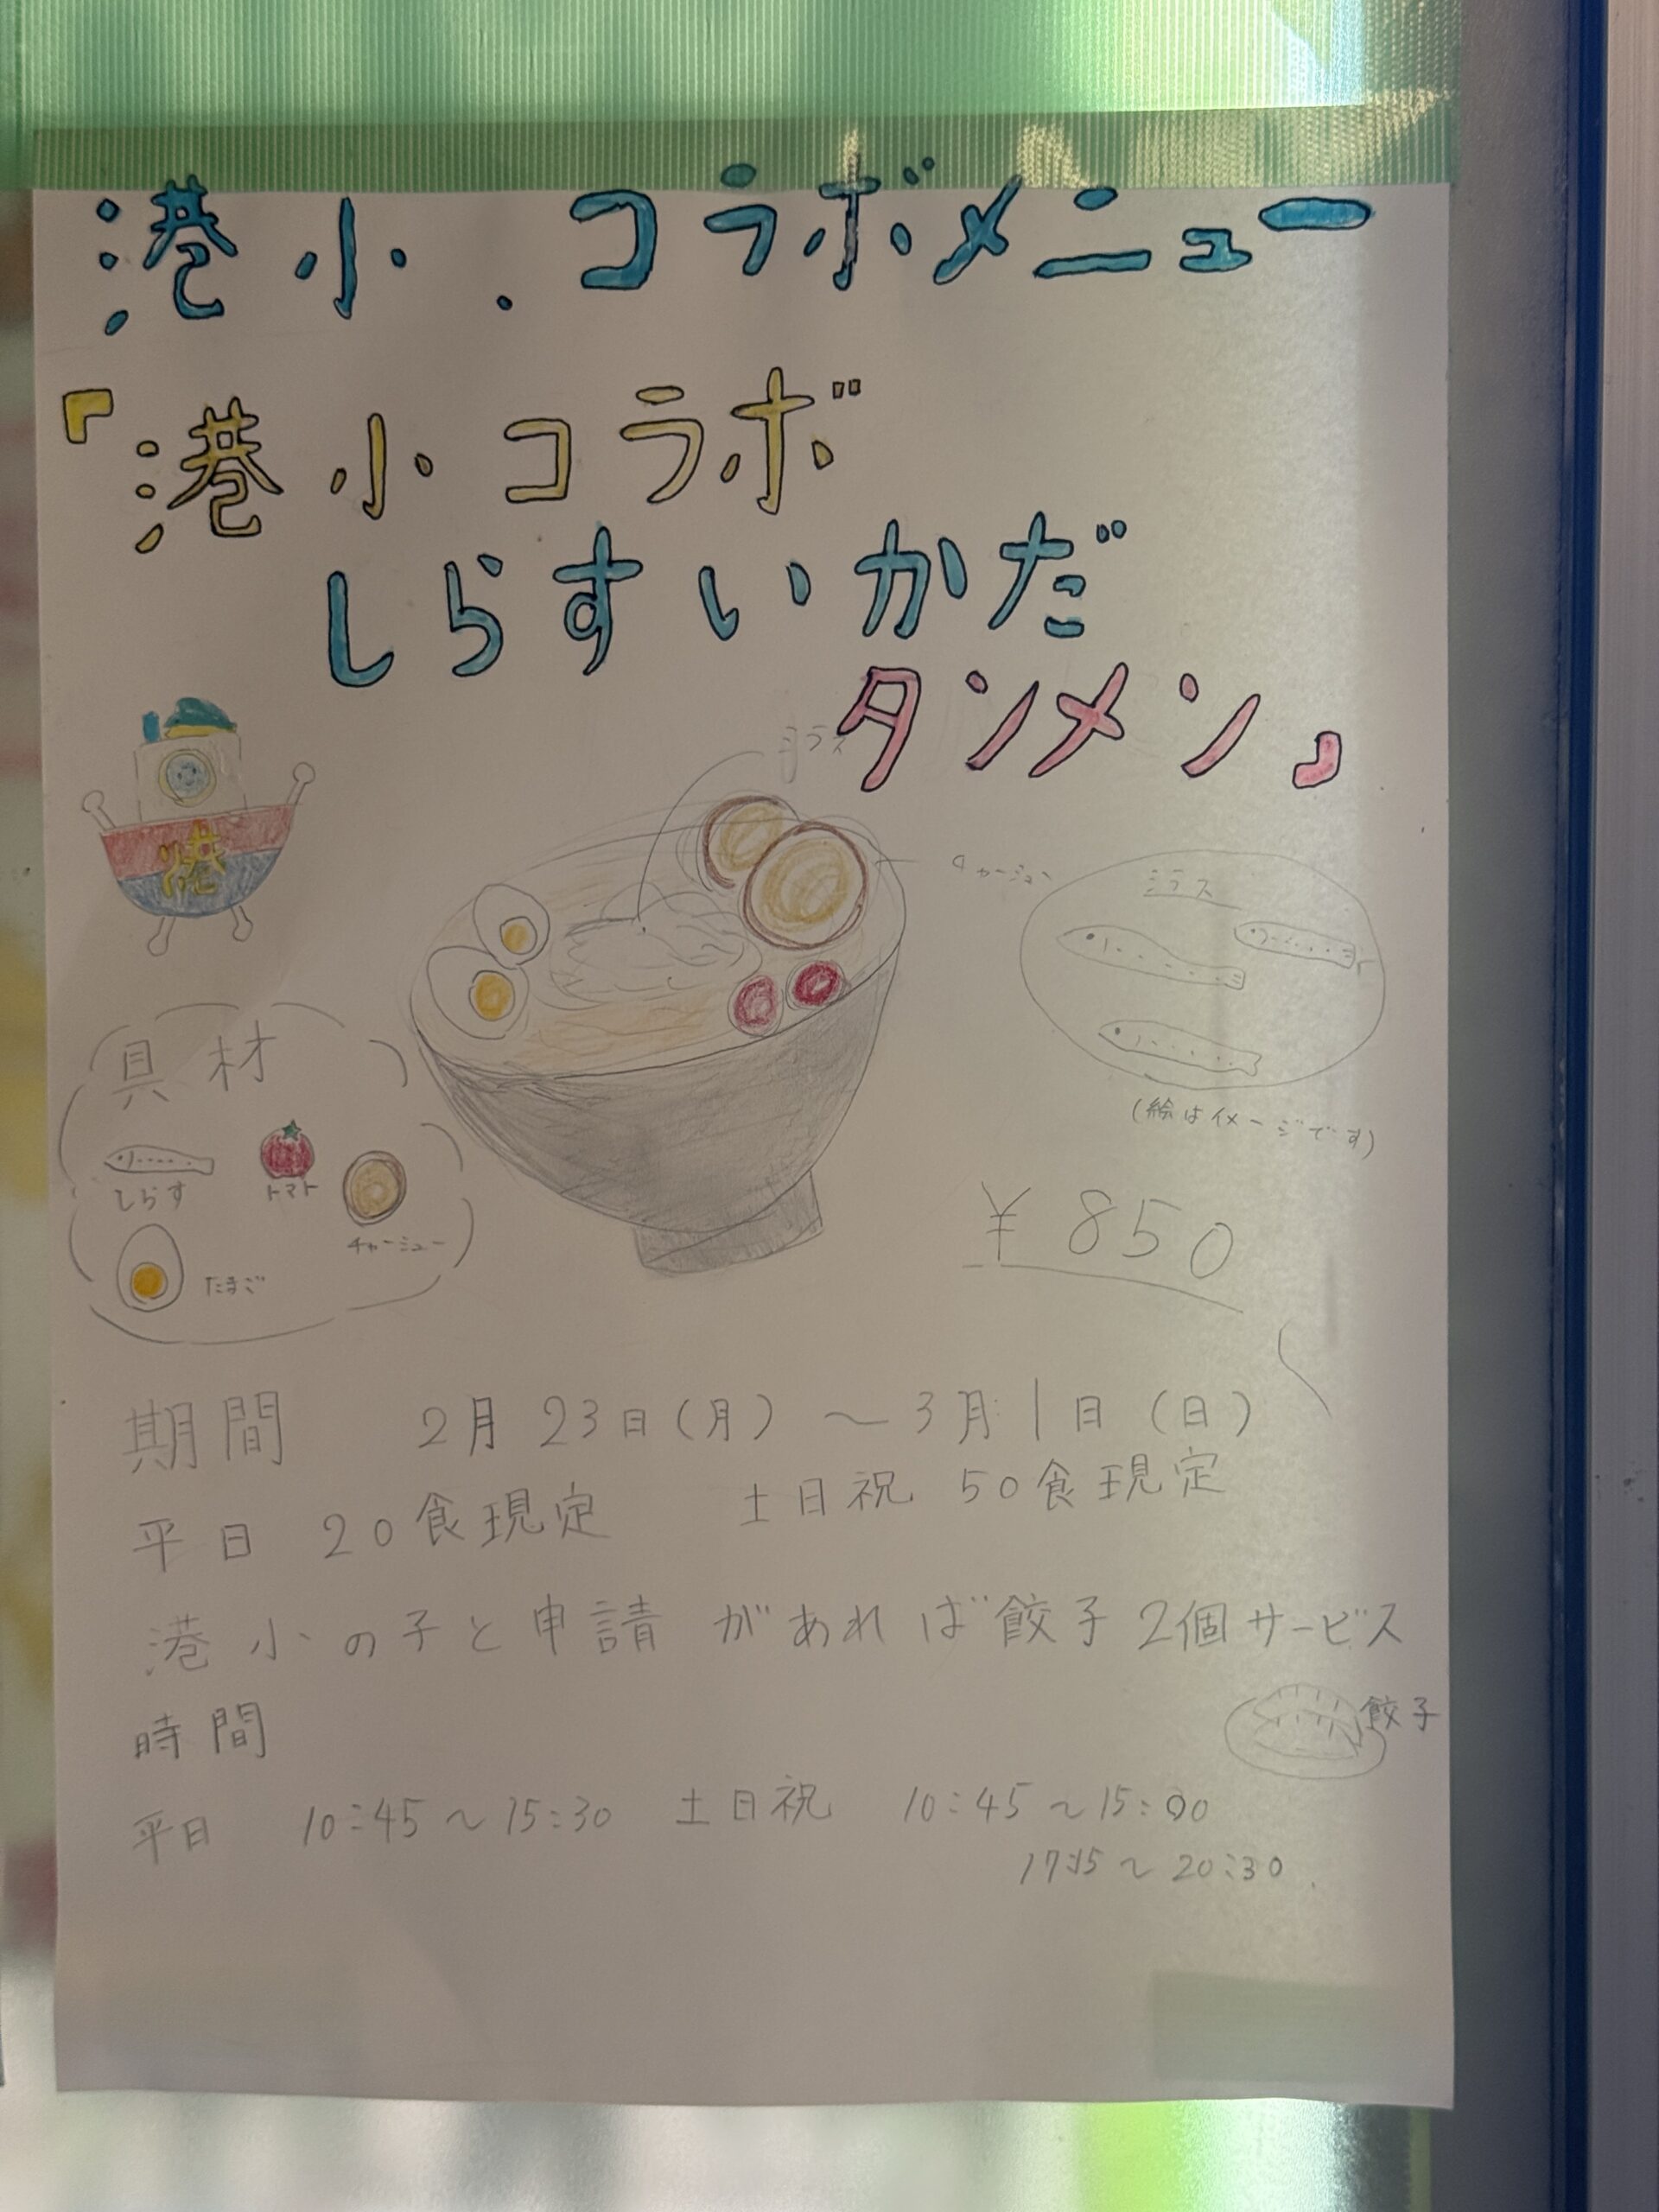 港小、コラボメニュー
『港小コラボ
しらすいかだ
タンメン』
シラス
チャーシュー
シラス
港
(絵はイメージです)
具材
しらす
トマト
チャーシュー
たまご
¥850
期間 2月23日(月)~3月1日(日)
平日 20食現定 土日祝 50食現定
港小の子と申請があれば餃子2個サービス
餃子
時間
平日 10:45~15:30 土日祝 10:45~15:00
17:15~20:30